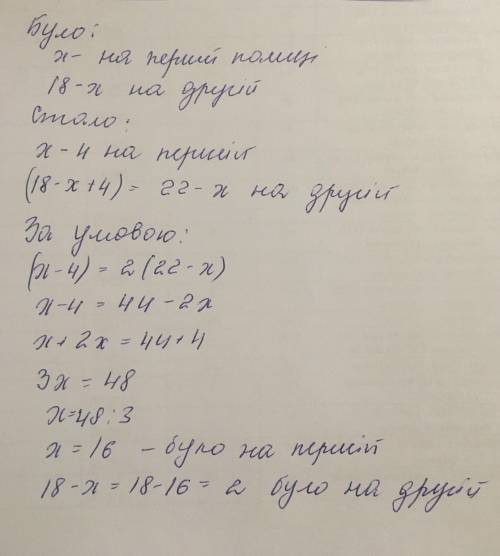 Було:
x - на перший полиці
18-x на другій
Стало:
x-4 на першій
(18-x+4) = 22-x на другій
За умовою:
(x-4) = 2(22-x)
x-4 = 44-2x
x+2x = 44+4
3x = 48
x=48:3
x = 16 - було на першій
18-x = 18-16 = 2 було на другій